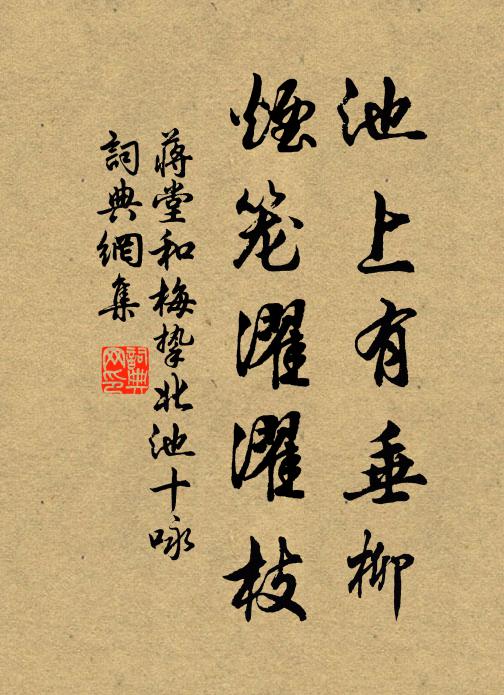 池上有垂柳
煙笼濯濯枝
蔣堂和梅挚北池十咏
詞典網集
詞典网印